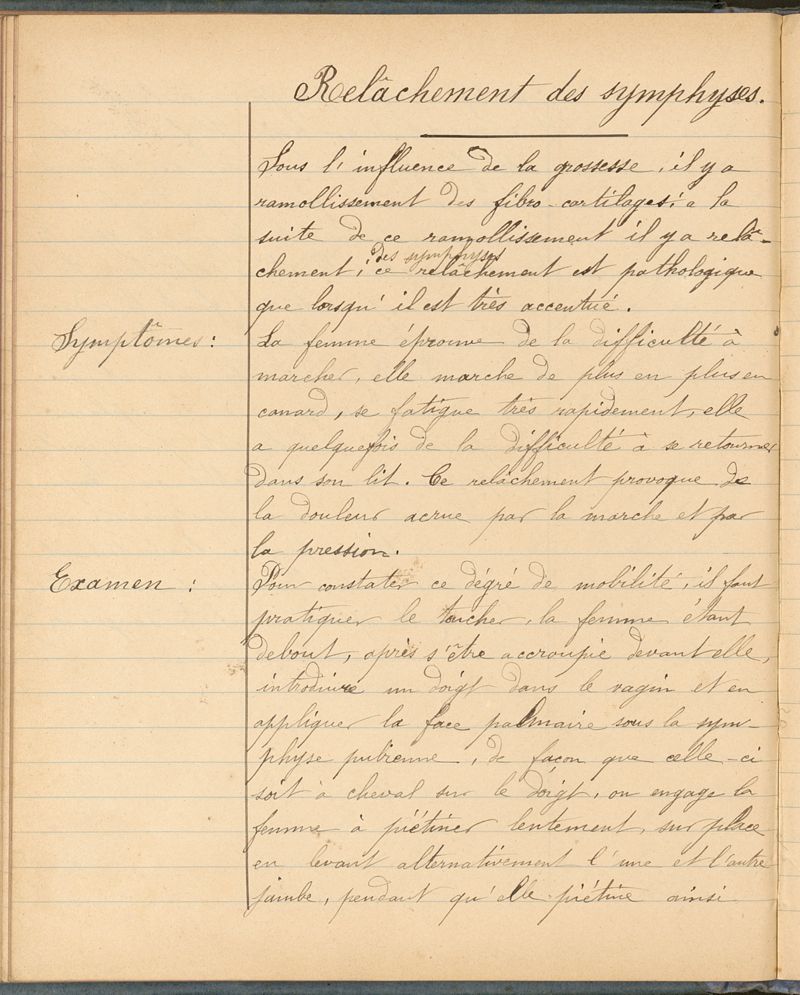 Relâchement des symphyses.
Sous l'influence de la grossesse, il y a
ramollissement des fibro-cartilages; a la
suite de ce ramollissement il y a relâ-
des symphyses
chement; ce relâchement est pathologique
que lorsqu'il est très accentué.
Symptômes :
La femme éprouve de la difficulté à
marcher, elle marche de plus en plus en
canard, se fatigue très rapidement, elle
a quelquefois de la difficulté à se retourner
dans son lit. Ce relâchement provoque de
la douleur acrue par la marche et par
la pression.
Examen :
Pour constater ce dégré de mobilité, il faut
pratiquer le toucher, la femme étant
debout, après s'être accroupie devant elle,
introduire un doigt dans le vagin et en
appliquer la face palmaire sous la sym-
physe pubienne, de façon que celle-ci
soit à cheval sur le doigt, on engage la
femme à piétiner lentement, sur place
en levant alternativement l'une et l'autre
jambe, pendant qu'elle piétine ainsi